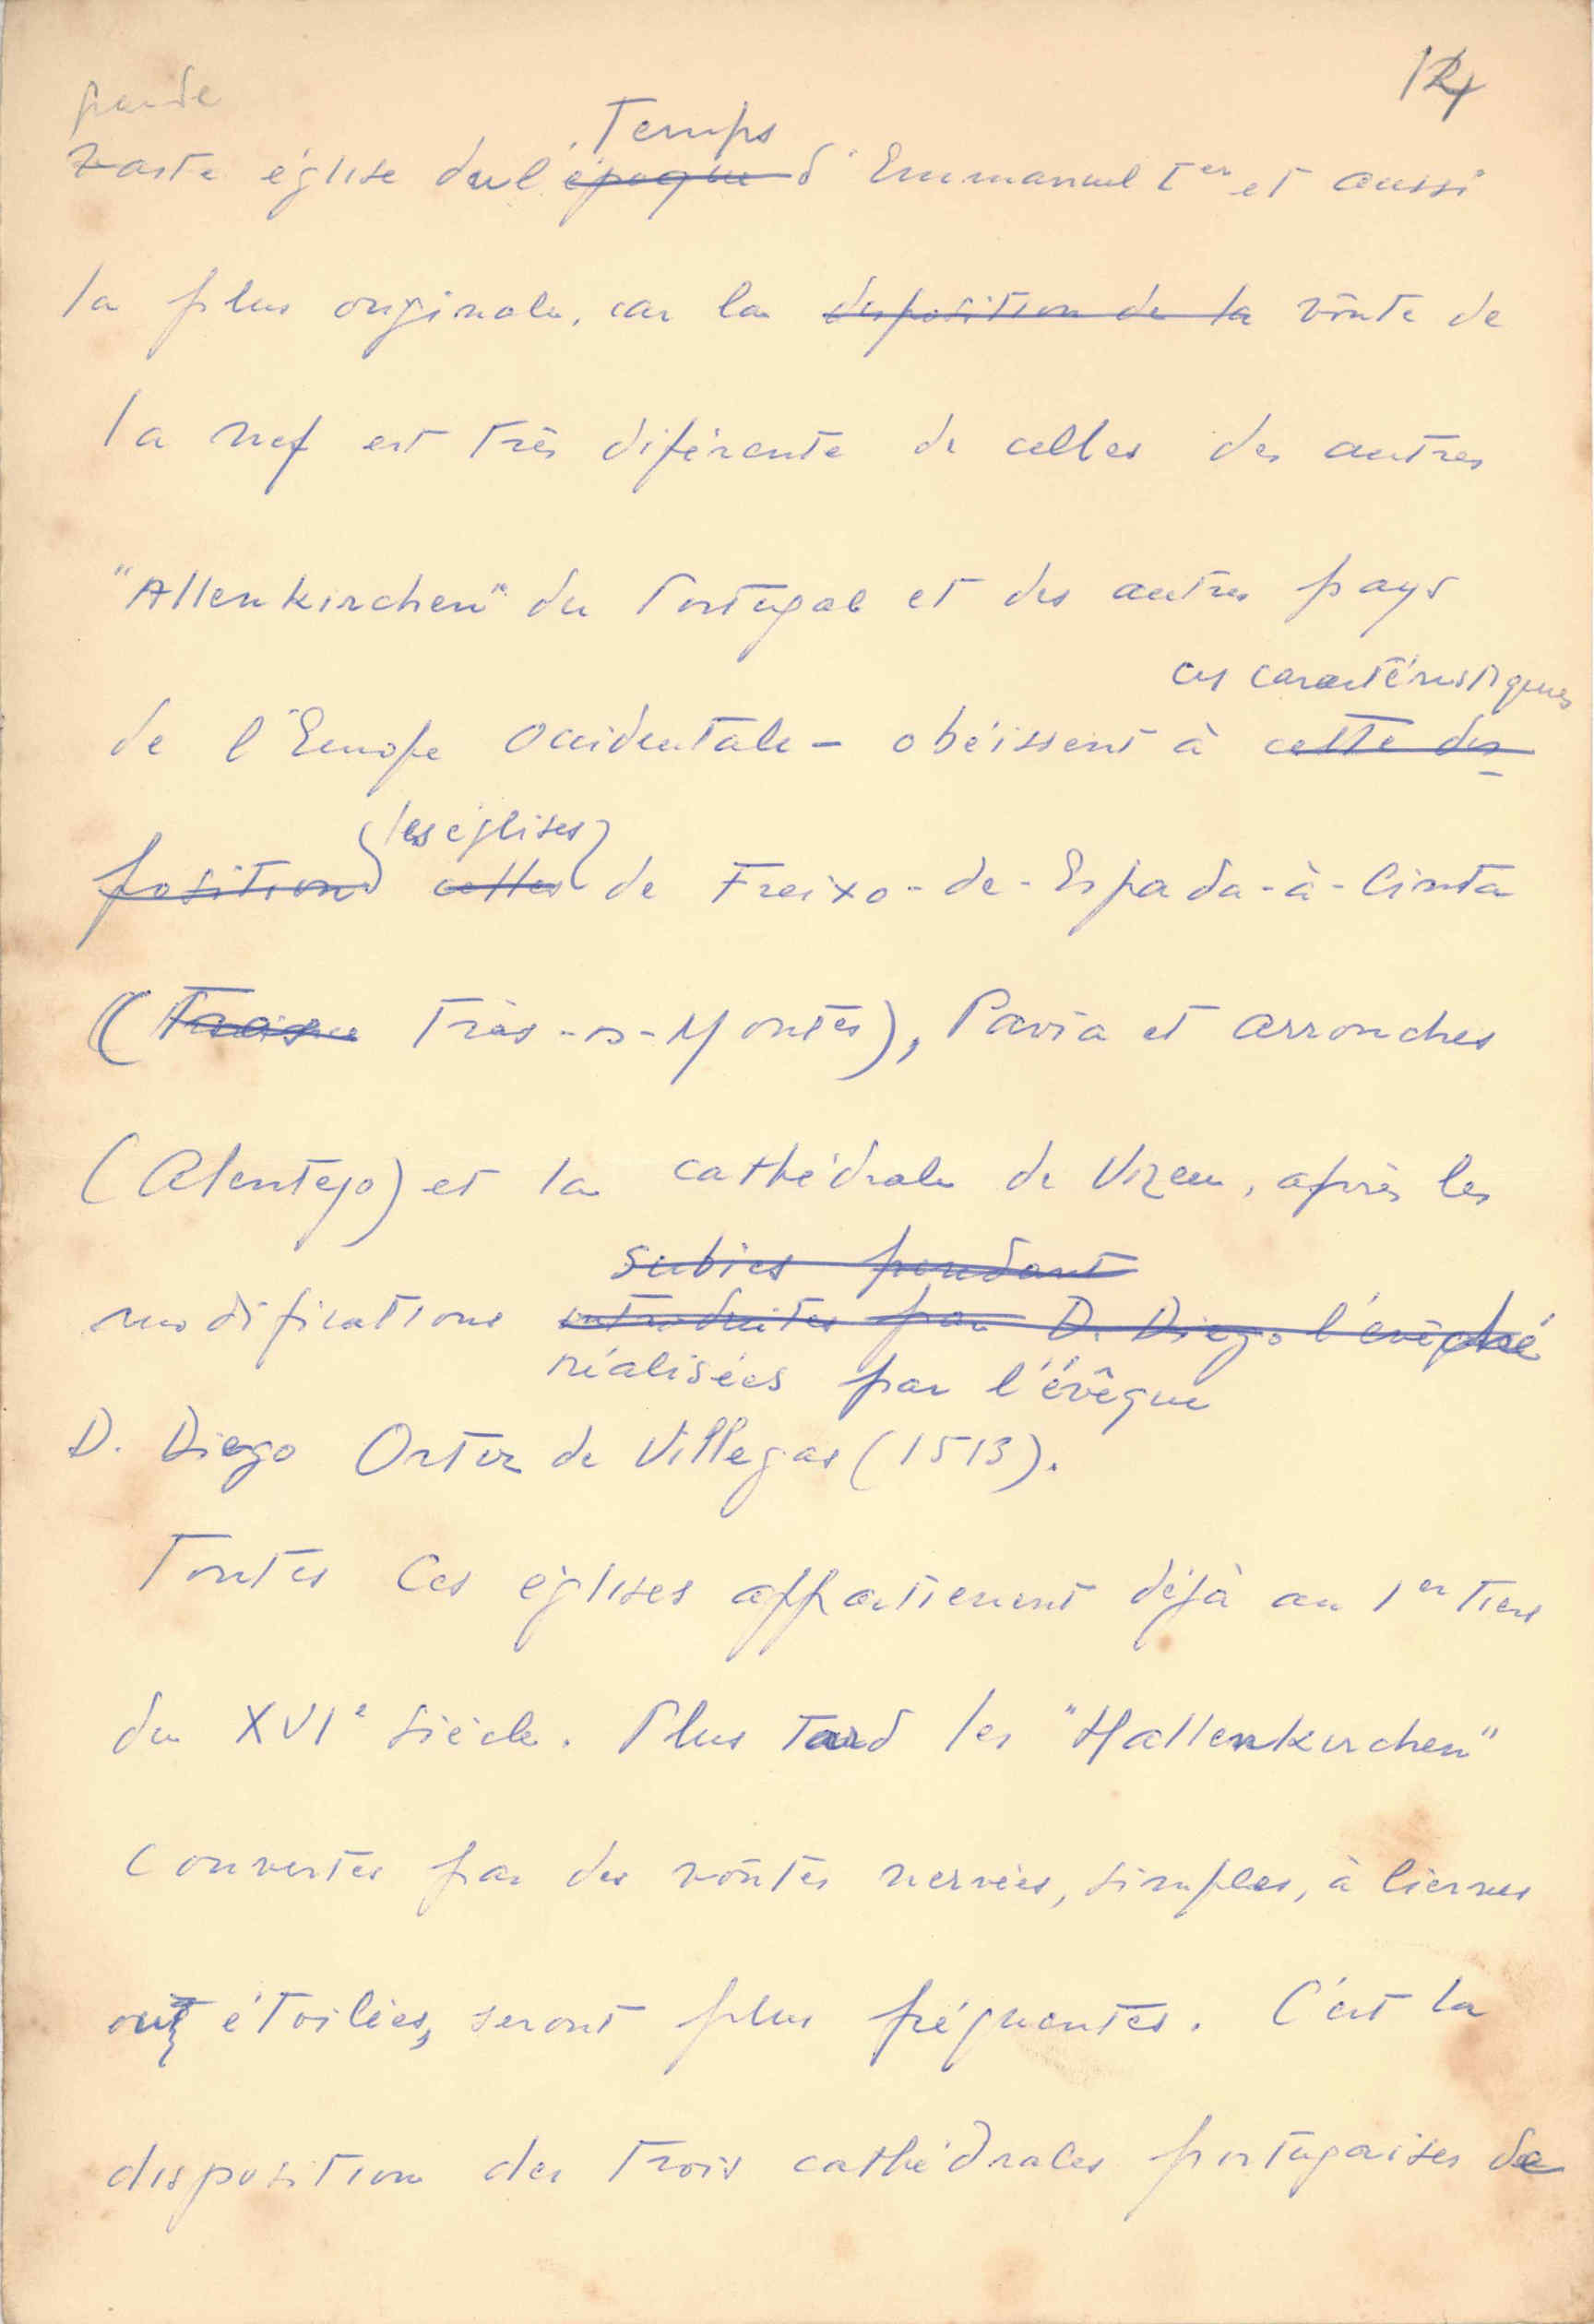 14
grande
vaste église du l'époque Temps d'Emmanuel Ier et aussi
la plus originale, car la disposition de la voûte de
la nef est très diférente de celles des autres
"Allenkirchen" du Portugal et des autres pays
ces caractéristiques
de l'Europe Occidentale - obéissent à cette dis-
les églises
position celles de Freixo-de-Espada-à-Cinta
(Tras-os-Montes), Pavia et Arronches
(Alentejo) et la cathédrale de Vizeu, après les
subies pendant
modifications introduites par D. Diego l'évêché
réalisées par l'évêque
D. Diego Ortiz de Villegas (1513).
Toutes ces églises appartienent déjà au 1er tiers
du XVIe siècle. Plus tard les "Hallenkirchen"
couvertes par des voûtes nervées, simples, à liernes
ou étoilées, seront plus fréquentes. C'est la
disposition des trois cathédrales portugaises de